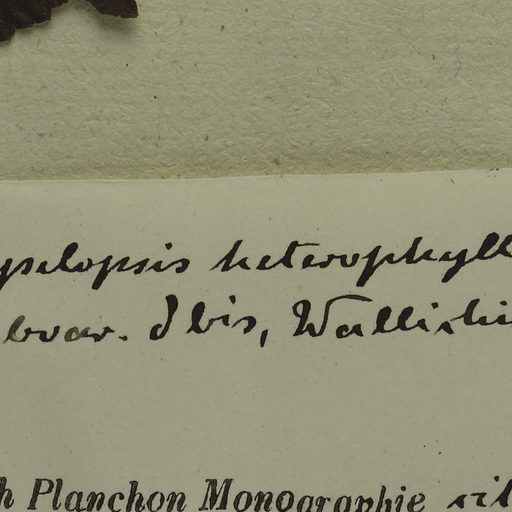 pselopsis heterophyll
bvar. δ bis, Wallichi
h Planchon Monographie